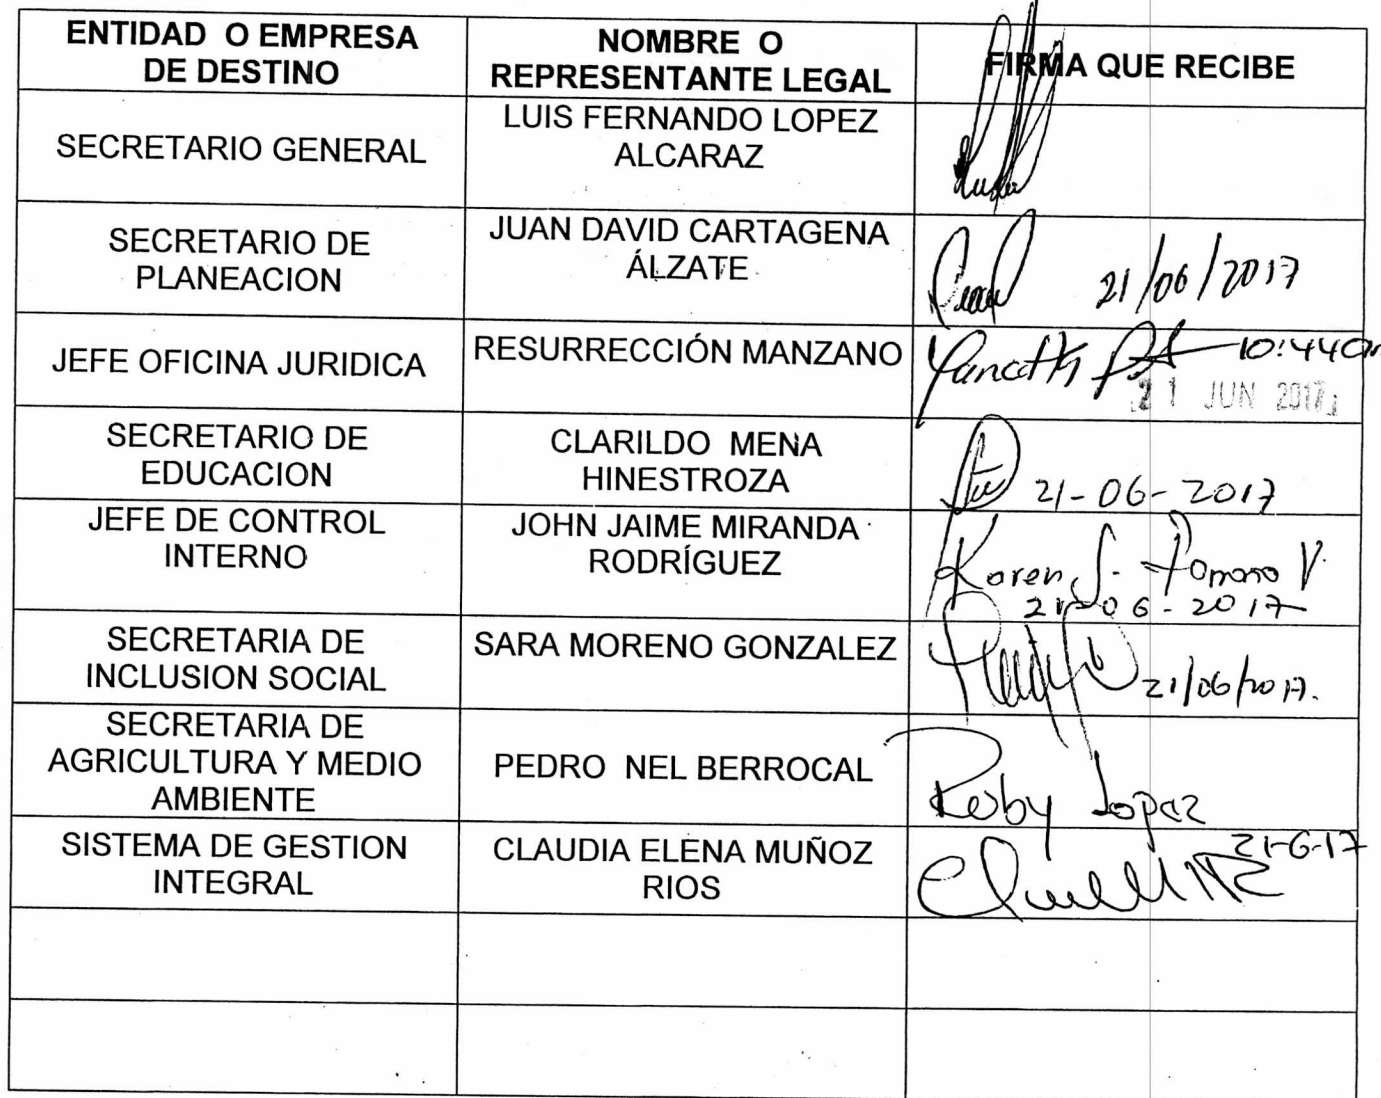 ENTIDAD O EMPRESA
DE DESTINO
NOMBRE O
REPRESENTANTE LEGAL
FIRMA QUE RECIBE
SECRETARIO GENERAL
LUIS FERNANDO LOPEZ
ALCARAZ
SECRETARIO DE
PLANEACION
JUAN DAVID CARTAGENA
ÁLZATE
21/06/2017
JEFE OFICINA JURIDICA
RESURRECCIÓN MANZANO
10:44am
21 JUN 2017
SECRETARIO DE
EDUCACION
CLARILDO MENA
HINESTROZA
21-06-2017
JEFE DE CONTROL
INTERNO
JOHN JAIME MIRANDA
RODRÍGUEZ
Karen S.
21-06-2017
SECRETARIA DE
INCLUSION SOCIAL
SARA MORENO GONZALEZ
21/06/2017.
SECRETARIA DE
AGRICULTURA Y MEDIO
AMBIENTE
PEDRO NEL BERROCAL
Lopez
21-6-17
SISTEMA DE GESTION
INTEGRAL
CLAUDIA ELENA MUÑOZ
RIOS